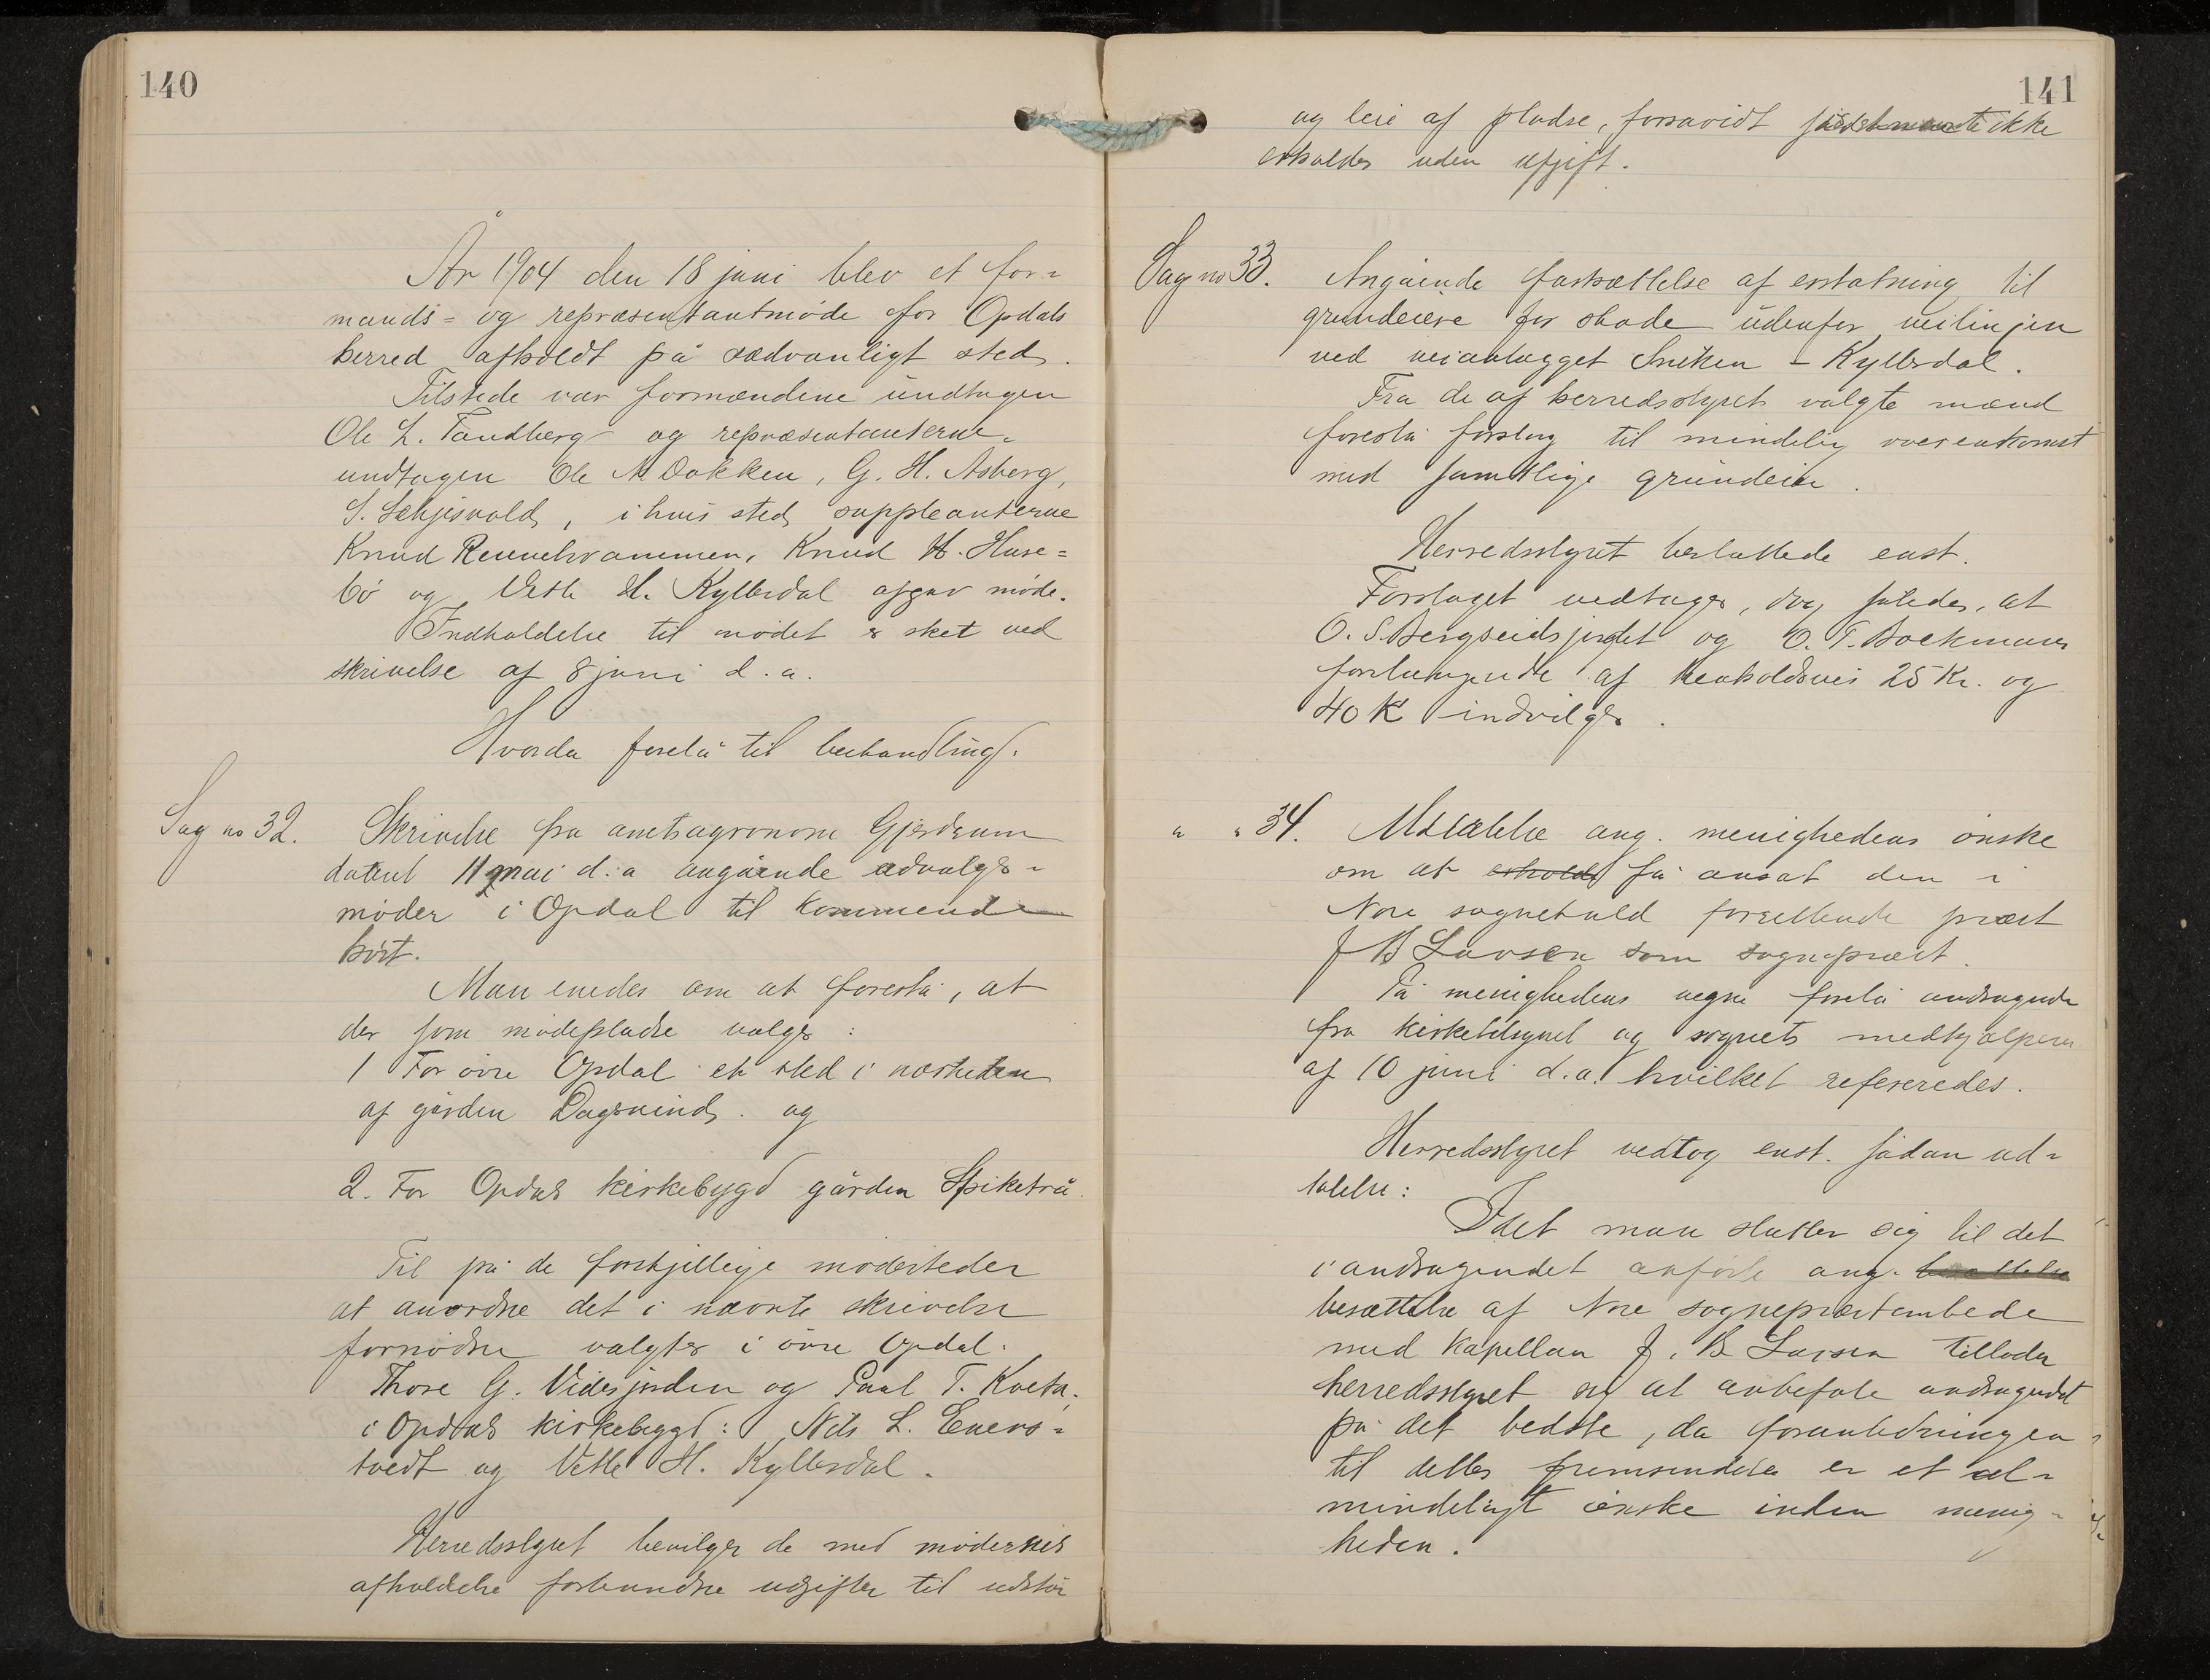 140
År 1904 den 18 juni blev et for=
mands= og repræsentantmøde for Opdals
herred afholdt på sædvanligt sted.
Tilstede var formændene undtagen
Ole L. Tandberg og repræsentanterne
undtagen Ole N. Dokken, G. H. Asberg,
S. , i hvis sted suppleanterne
Knud Rennehvammen, Knud H. Huse=
bö og Vetle H. Kyllesdal afgav møde.
Indkaldelse til mødet er sket ved
skrivelse af 8 juni d.a.
Hvorda forelå til behandling:
Sag no 32. Skrivelse fra amtsagronom Gjerdrum
datert 11 mai d.a angående udvalgs=
møder i Opdal til kommende
høst.
Man enedes om at foreslå, at
der som mødepladse valges:
1 For øvre Opdal et sted i nærheten
af gården Dagsvind. og
2. For Opdals kirkebygd gården Spiketrå.
Til på de forskjellige mødesteder
at anordne det i nævnte skrivelse
fornødne valgtes i øvre Opdal:
Thore G. Videsjorden og Paul T. Kveta,
i Opdals kirkebygd: Nils L. Eners=
tvedt og Vetle H. Kyllesdal.
Herredsstyret bevilger de med mødernes
afholdelse forbundne udgifter til udstyr
141
og leie af pladse, forsavidt ikke
erholdes uden afgift.
Sag no 33. Angående fastsættelse af erstatning til
grundeiere for skade udenfor veilinjen
ved veianlægget Sneken - Kyllesdal.
Fra de af herredsstyret valgte mænd
forelå forslag til mindelig overenkomst
med samtlige grundeiere.
Herredsstyret besluttede enst.
Forslaget vedtages, dog således, at
O. S. Bergseidsjordet og O. T. Bockmans
forlangende af henholdsvis 25 Kr. og
40 K indvilges.
" " 34. Udtalelse ang. menighedens ønske
om at erholde få ansat den i
Nore sognekald forrettende præst
J B Larsen som sognepræst.
På menighedens vegne forelå andragende
fra kirketilsynet og sognets medhjælpere
af 10 juni d.a. hvilket refereredes.
Herredsstyret vedtog enst. sådan ud=
talelse:
Idet man slutter sig til det
i andragendet anførte ang.
besættelse af Nore sognepræstembede
med kapellan J. B Larsen tillader
herredsstyret sig at anbefale andragendet
på det bedste, da foranledningen
til dettes fremsendelse er et al=
mindeligt ønske inden menig=
heden.